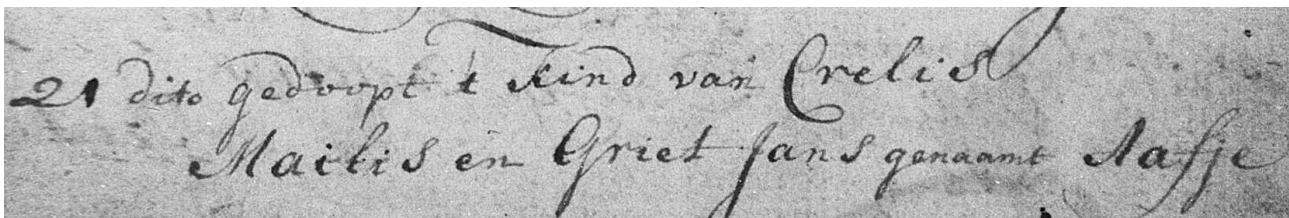 21 dito gedoopt t kind van Crelis
Mailis en Griet Jans genaamt Aafje